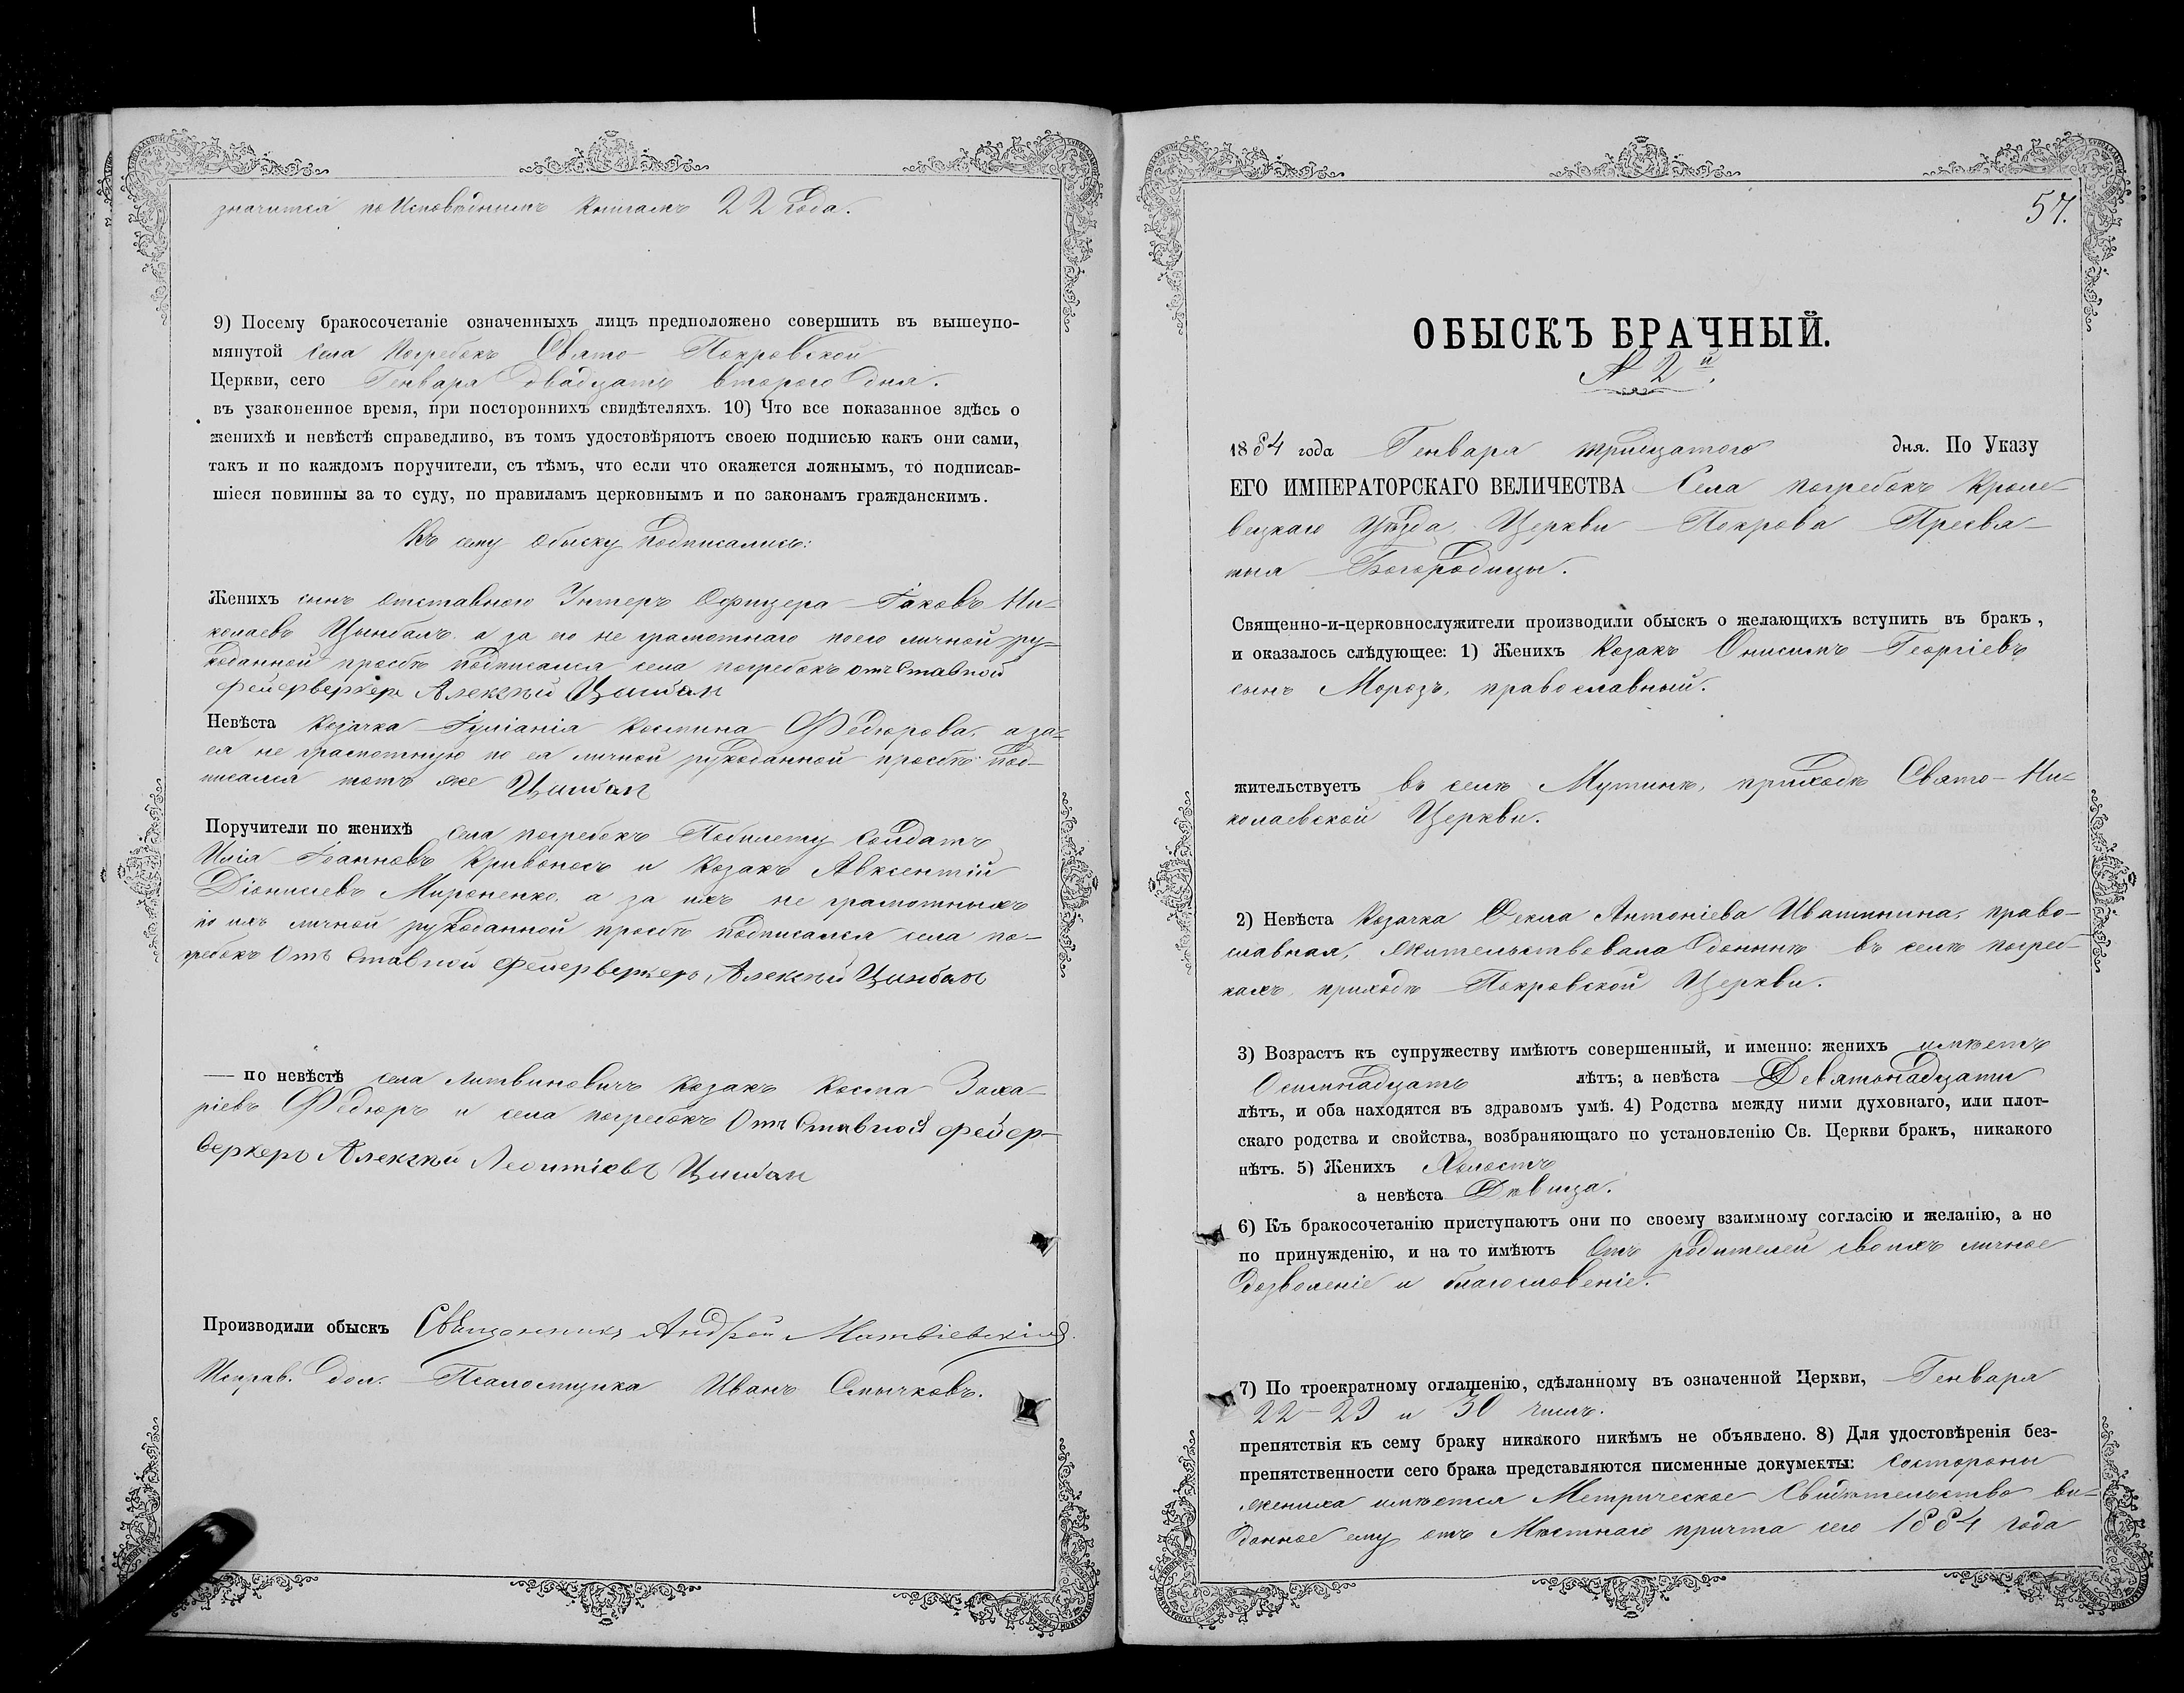 значится по Исповѣднымъ книгамъ 22 года.
9) Посему бракосочетаніе означенныхъ лицъ предположено совершить въ вышеупо-
мянутой села Погребокъ Свято-Покровской
Церкви, сего Генваря двадцать втораго дня.
въ узаконенное время, при постороннихъ свидѣтеляхъ. 10) Что все показанное здѣсь о
женихѣ и невѣстѣ справедливо, въ томъ удостовѣряютъ своею подписью какъ они сами,
такъ и по каждомъ поручители, съ тѣмъ, что если что окажется ложнымъ, то подписав-
шіеся повинны за то суду, по правиламъ церковнымъ и по законамъ гражданскимъ.
Къ сему обыску подписались:
Женихъ сынъ отставного Унтеръ Офицера Іаковъ Ни-
колаевъ Цынбалъ, а за его не грамотнаго по его личной ру-
коданной прозбѣ подписался села погребокъ отъ Ставной
фейерверкеръ Алексѣй Цынбал
Невѣста козачка Іуліанія Космина Федюрова, а за-
ея не грамотную по ея личной рукоданной прозбѣ под-
писался тотъ же Цынбал
Поручители по женихѣ села погребокъ Побилету Солдатъ
Илія Іоанновъ Кривоносъ и Козакъ Авксентій
Діонисіевъ Мироненко, а за ихъ не грамотныхъ
по ихъ личной рукоданной прозбѣ подписался села по-
гребокъ Отъ Ставной фейерверкеръ Алексѣй Цынбал
— по невѣстѣ села Литвиновичъ козакъ Косма Заха-
ріевъ Федюръ и села погребокъ Отъ Ставной фейер-
веркеръ Алексѣй Леонтіевъ Цынбал
Производили обыскъ Священникъ Андрей Матвіевскій
Исправ. дол. Псаломщика Иванъ Смычковъ.
57.
ОБЫСКЪ БРАЧНЫЙ.
№ 2й.
1884 года Генваря тридцатого дня. По Указу
ЕГО ИМПЕРАТОРСКАГО ВЕЛИЧЕСТВА Села погребокъ Кроле-
вецкаго Уѣзда, Церкви Покрова Пресвя-
тыя Богородицы.
Священно-и-церковнослужители производили обыскъ о желающихъ вступить въ бракъ,
и оказалось слѣдующее: 1) Женихъ Козакъ Онисимъ Георгіевъ
сынъ Морозъ, православный.
жительствуетъ въ селѣ Мутинѣ, приходѣ Свято-Ни-
колаевской Церкви.
2) Невѣста Козачка Фекла Антоніева Ивашинина, право-
славная, жительствовала донынѣ въ селѣ погреб-
кахъ, приходѣ Покровской Церкви.
3) Возрастъ къ супружеству имѣютъ совершенный, и именно: женихъ имѣетъ
Осьмнадцать лѣтъ; а невѣста Девятонадцати
лѣтъ, и оба находятся въ здравомъ умѣ. 4) Родства между ними духовнаго, или плот-
скаго родства и свойства, возбраняющаго по установленію Св. Церкви бракъ, никакого
нѣтъ. 5) Женихъ Холостъ
а невѣста Дѣвица.
6) Къ бракосочетанію приступаютъ они по своему взаимному согласію и желанію, а не
по принужденію, и на то имѣютъ Отъ родителей своихъ личное
дозволеніе и благословеніе.
7) По троекратному оглашенію, сдѣланному въ означенной Церкви, Генваря
22-29 и 30 чисъ.
препятствія къ сему браку никакого никѣмъ не объявлено. 8) Для удостовѣренія без-
препятственности сего брака представляются писменные документы: Состороны
жениха имѣется Метрическое Свидѣтельство ви-
данное ему отъ Мѣстнаго причта сего 1884 года